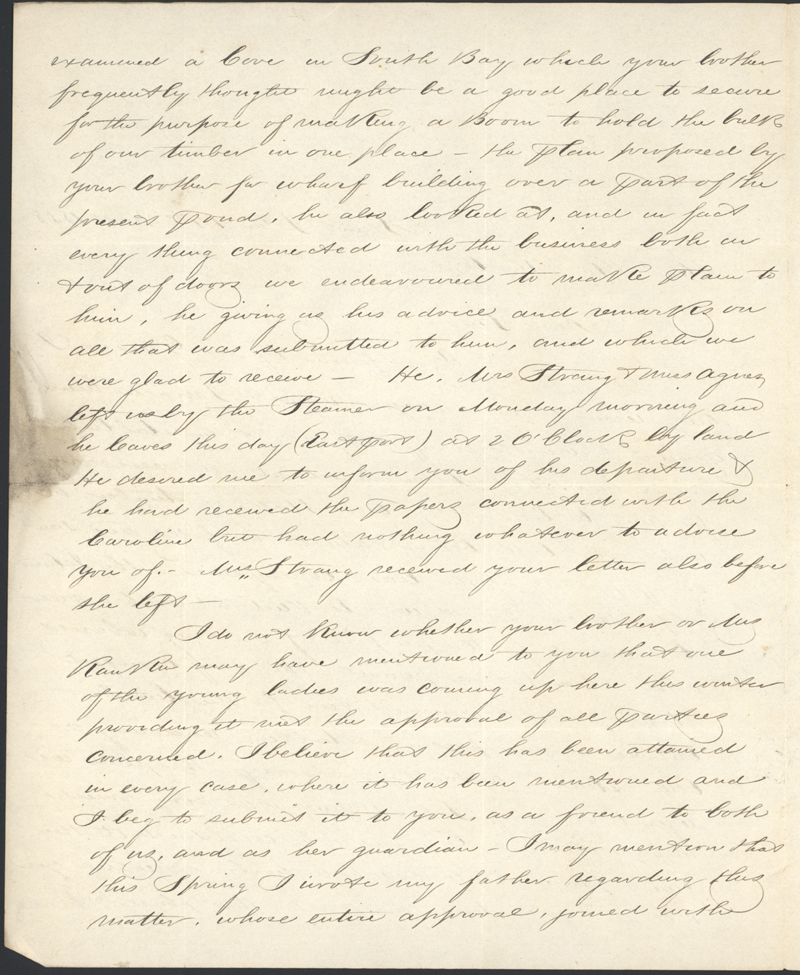 examined a Cove in South Bay which your brother
frequently thought might be a good place to secure
for the purpose of making a Boom to hold the bulk
of our timber in one place – the plan proposed by
your brother for wharf building over a part of the
present pond, he also looked at, and in fact
every thing connected with the business both in
& out of doors we endeavoured to make plain to
him, he giving us his advice and remarks on
all that was submitted to him, and which we
were glad to receive – He, Mrs Strang & Miss Agnes
left us by the Steamer on Monday morning and
he leaves this day (Eastport) at 2 O'Clock by land
He desired me to inform you of his departure &
he had received the papers connected with the
Caroline but had nothing whatever to advise
you of. – Mrs Strang received your letter also before
she left –
I do not know whether your brother or Mrs
Rankin may have mentioned to you that one
of the young ladies was coming up here this winter
providing it met the approval of all parties
concerned. I believe that this has been attained
in every case, where it has been mentioned and
I beg to submit it to you, as a friend to both
of us, and as her guardian – I may mention that
this Spring I wrote my father regarding this
matter, whose entire approval, joined with